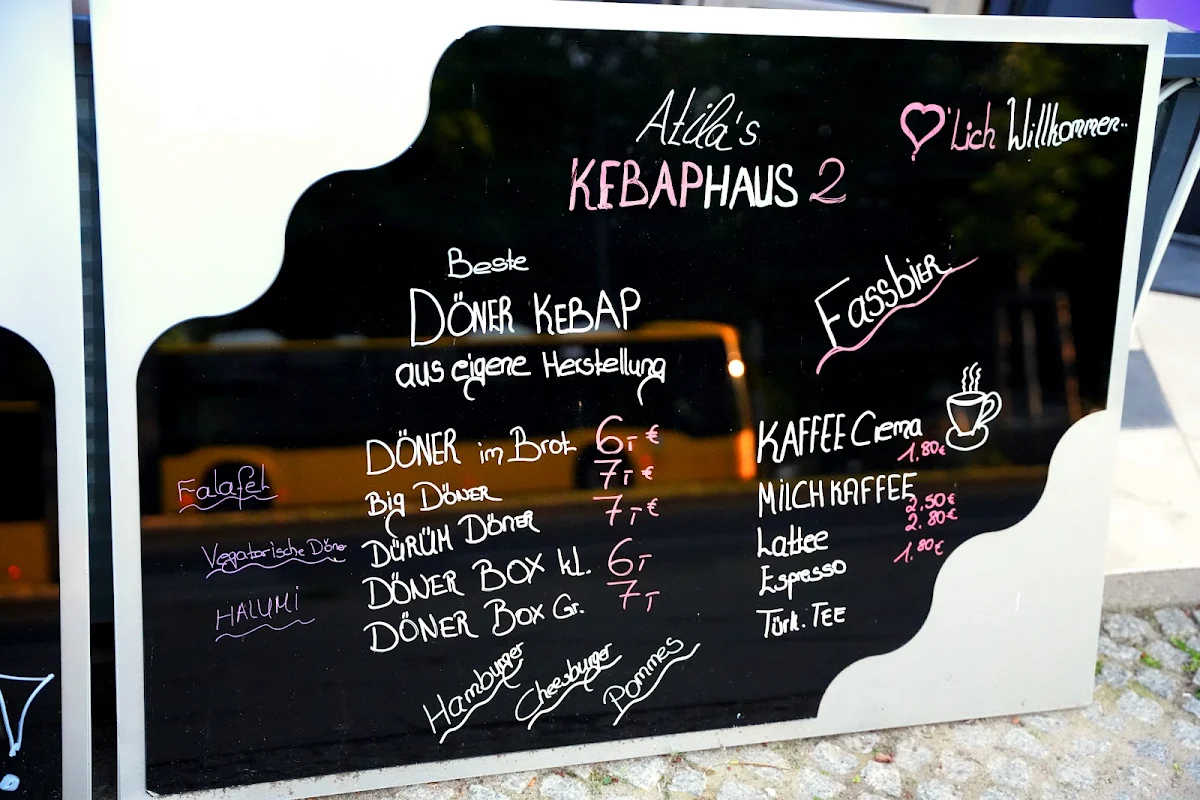 Atila's
♡'lich Willkommen..
KEBAPHAUS 2
Beste
DÖNER KEBAP
aus eigene Herstellung
Fassbier
Falafel
Vegatarische Döner
HALUMI
DÖNER im Brot 6,- €
Big DÖNER 7,- €
DÜRÜM DÖNER 7,- €
DÖNER BOX kl. 6,-
DÖNER BOX Gr. 7,-
Hamburger
Cheesburger
Pommes
KAFFEE Crema 1.80€
MILCHKAFFEE 2,50€
Lattee 2.80€
Espresso 1.80€
Türk. TEE